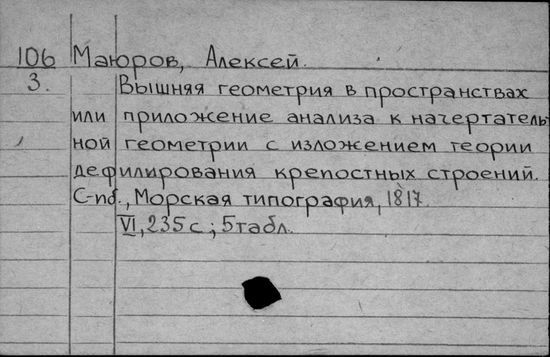 106 Маюров, Алексей.
3. Вышняя геометрия в пространствах
или приложение анализа к начертатель-
ной геометрии с изложением теории
дефилирования крепостных строений.
С-пб., Морская типография, 1817.
VI, 235 с.; 5 табл.